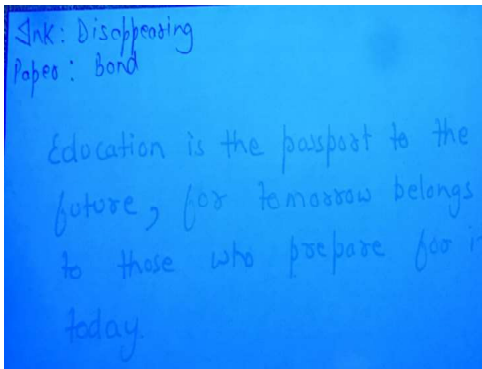 Ink: Disappearing
Paper: Bond
Education is the passport to the
future, for tomorrow belongs
to those who prepare for i
today.